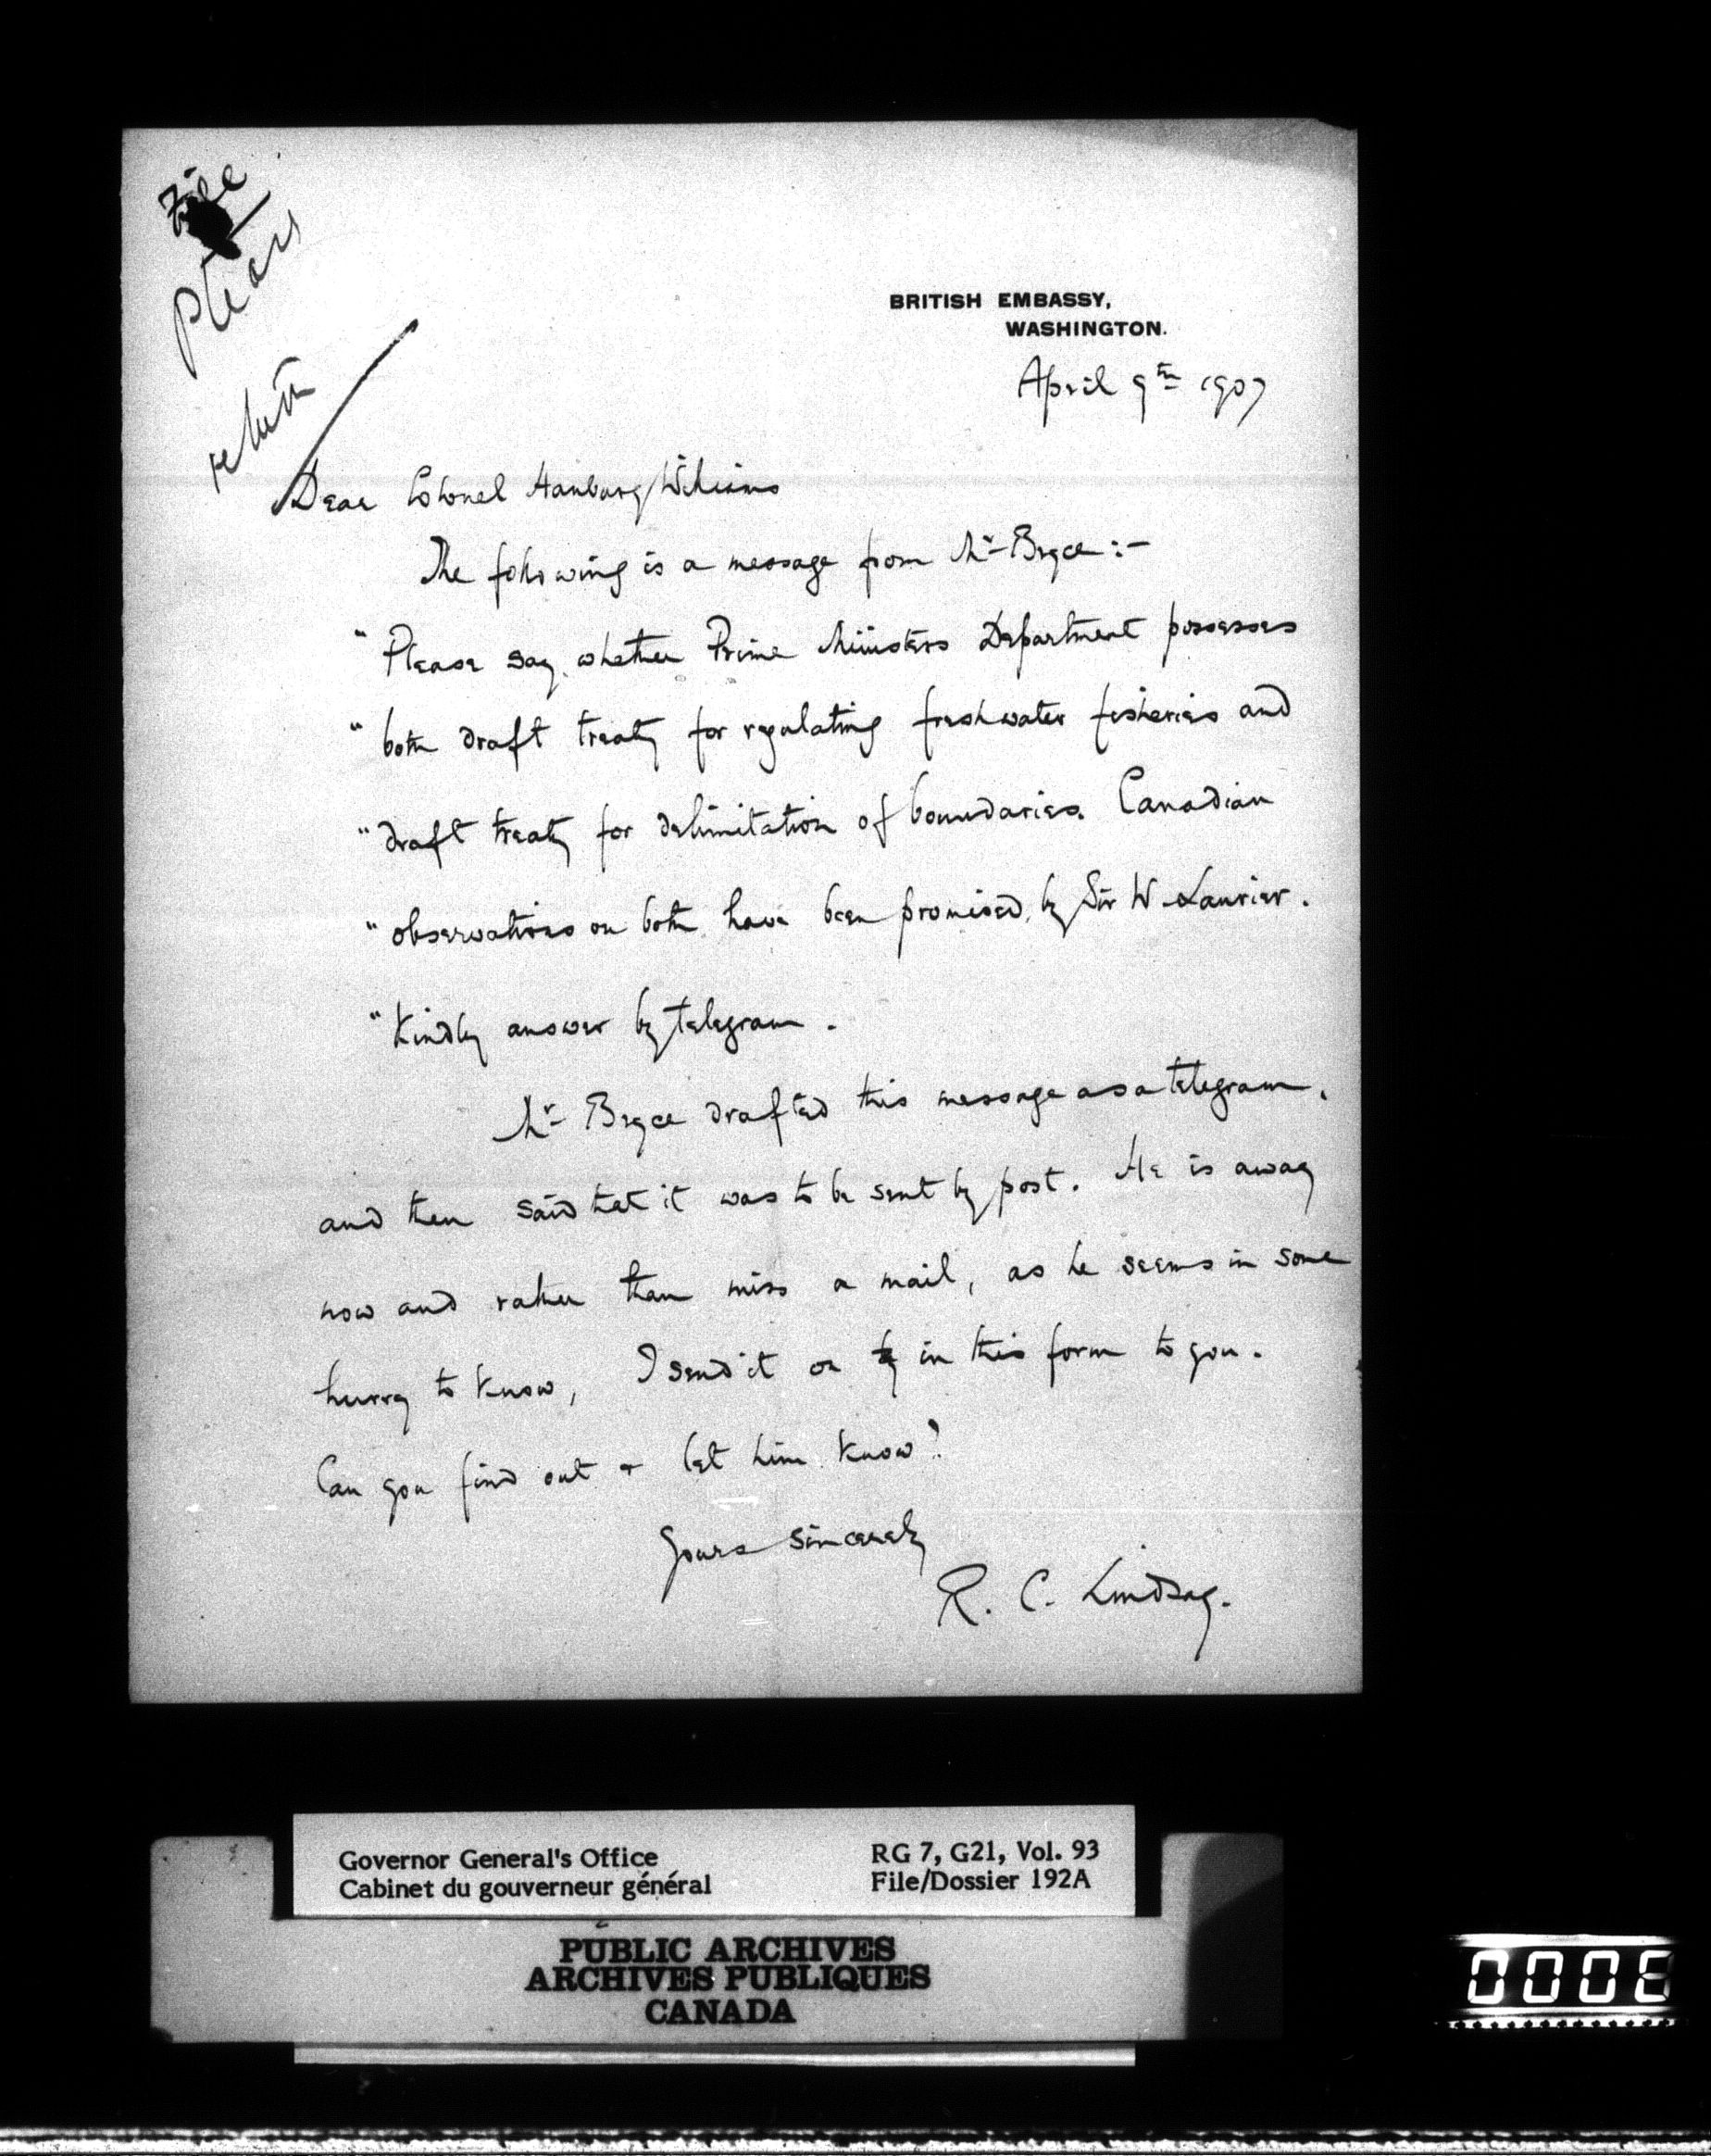 File
Please
return
BRITISH EMBASSY,
WASHINGTON.
April 9th 1907
Dear Colonel Hanbury Williams
The following is a message from Mr Bryce :-
" Please say whether Prime Ministers Department possesses
" both draft treaty for regulating freshwater fisheries and
" draft treaty for delimitation of boundaries. Canadian
" observations on both have been promised by Sir W. Laurier.
" Kindly answer by telegram.
Mr Bryce drafted this message as a telegram,
and then said that it was to be sent by post. He is away
now and rather than miss a mail, as he seems in some
hurry to know, I send it on by in this form to you.
Can you find out & let him know?
Yours sincerely
R. C. Lindsay.
Governor General's Office
Cabinet du gouverneur général
RG 7, G21, Vol. 93
File/Dossier 192A
PUBLIC ARCHIVES
ARCHIVES PUBLIQUES
CANADA